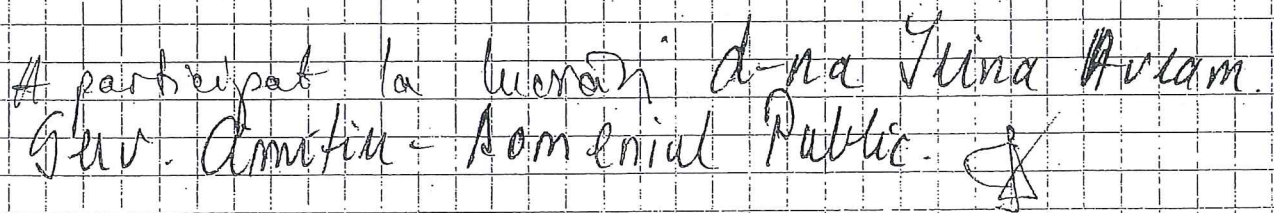 A participat la lucrări d-na Irina Avram.
Serv. Cimitire - Domeniul Public.